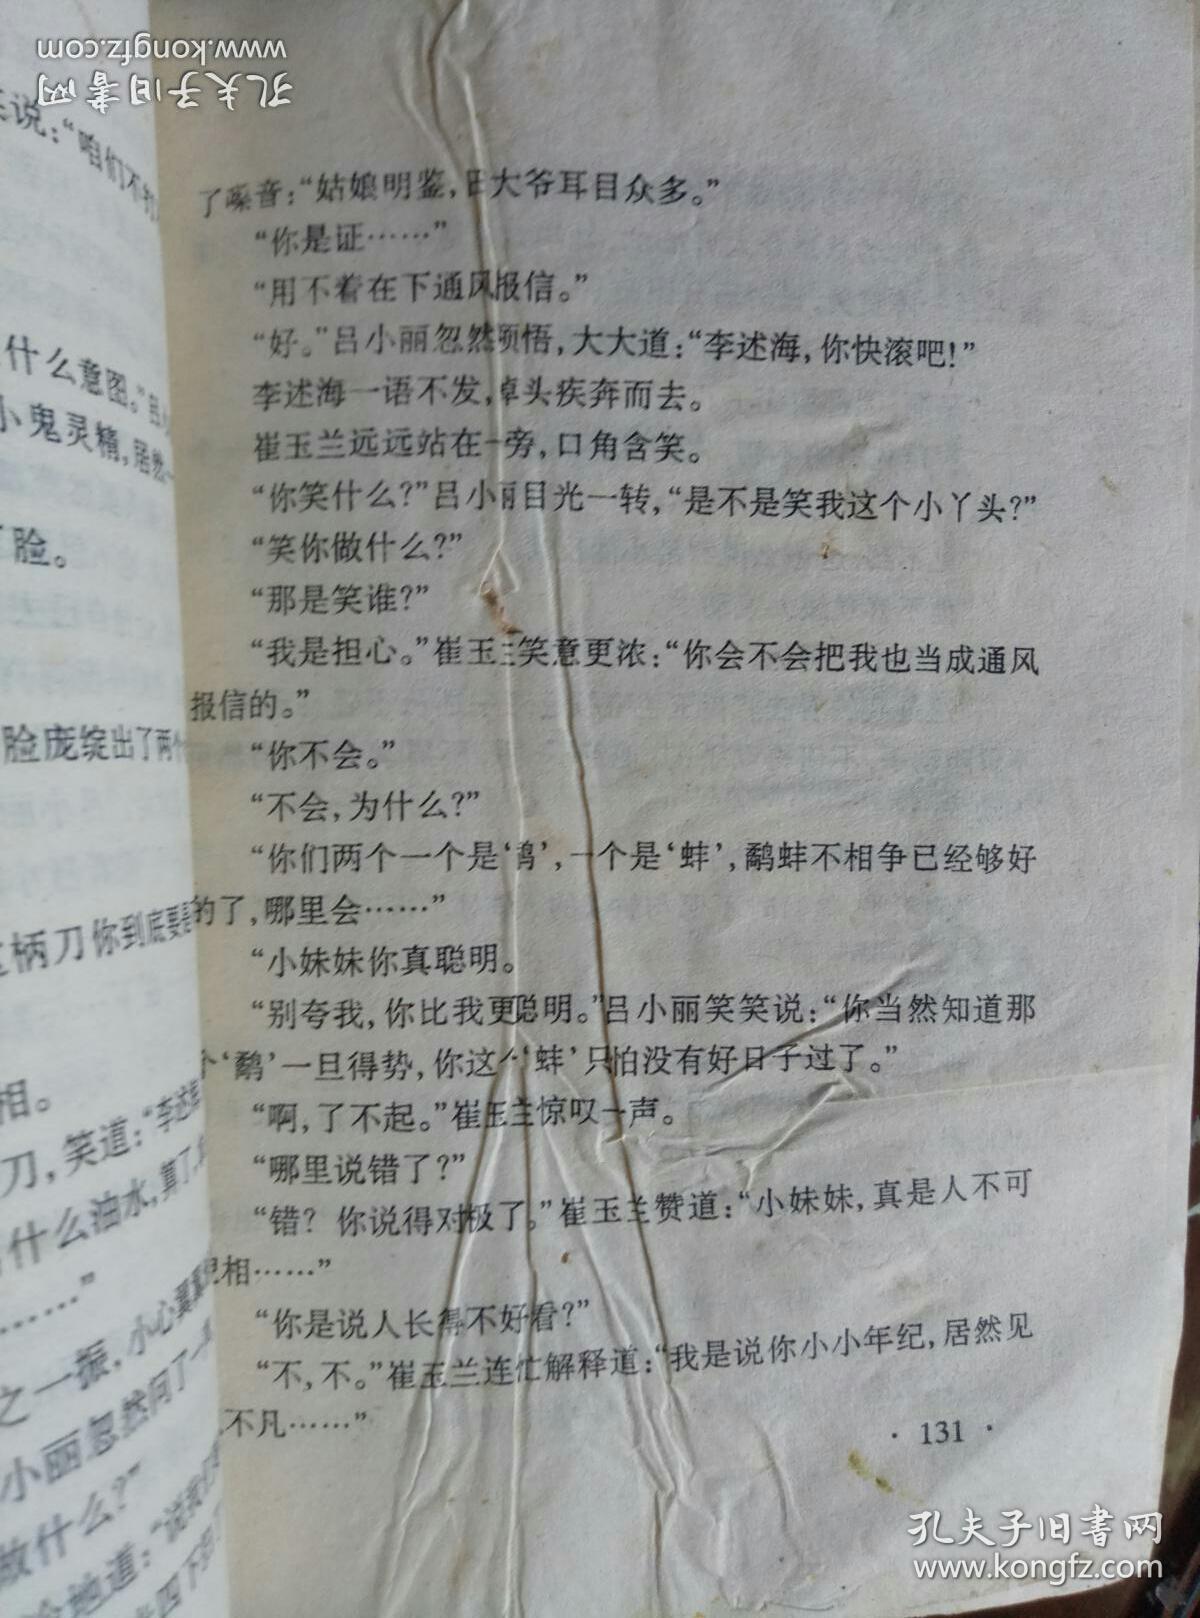 www.kongfz.com
孔夫子旧书网
说：“咱们不打
什么意图。”吕
小鬼灵精，居然
脸。
脸庞绽出了两个
柄刀你到底要
相。
刀，笑道：“李述
什么油水，算了，
……”
之一振，小心翼
小丽忽然问了一
做什么？”
地道：“说我们
四下
了嗓音：“姑娘明鉴，大爷耳目众多。”
“你是证……”
“用不着在下通风报信。”
“好。”吕小丽忽然顿悟，大大道：“李述海，你快滚吧！”
李述海一语不发，掉头疾奔而去。
崔玉兰远远站在一旁，口角含笑。
“你笑什么？”吕小丽目光一转，“是不是笑我这个小丫头？”
“笑你做什么？”
“那是笑谁？”
“我是担心。”崔玉兰笑意更浓：“你会不会把我也当成通风
报信的。”
“你不会。”
“不会，为什么？”
“你们两个一个是‘鹬’，一个是‘蚌’，鹬蚌不相争已经够好
的了，哪里会……”
“小妹妹你真聪明。
“别夸我，你比我更聪明。”吕小丽笑笑说：“你当然知道那
个‘鹬’一旦得势，你这个‘蚌’只怕没有好日子过了。”
“啊，了不起。”崔玉兰惊叹一声。
“哪里说错了？”
“错？你说得对极了。”崔玉兰赞道：“小妹妹，真是人不可
貌相……”
“你是说人长得不好看？”
“不，不。”崔玉兰连忙解释道：“我是说你小小年纪，居然见
不凡……”
· 131 ·
孔夫子旧书网
www.kongfz.com